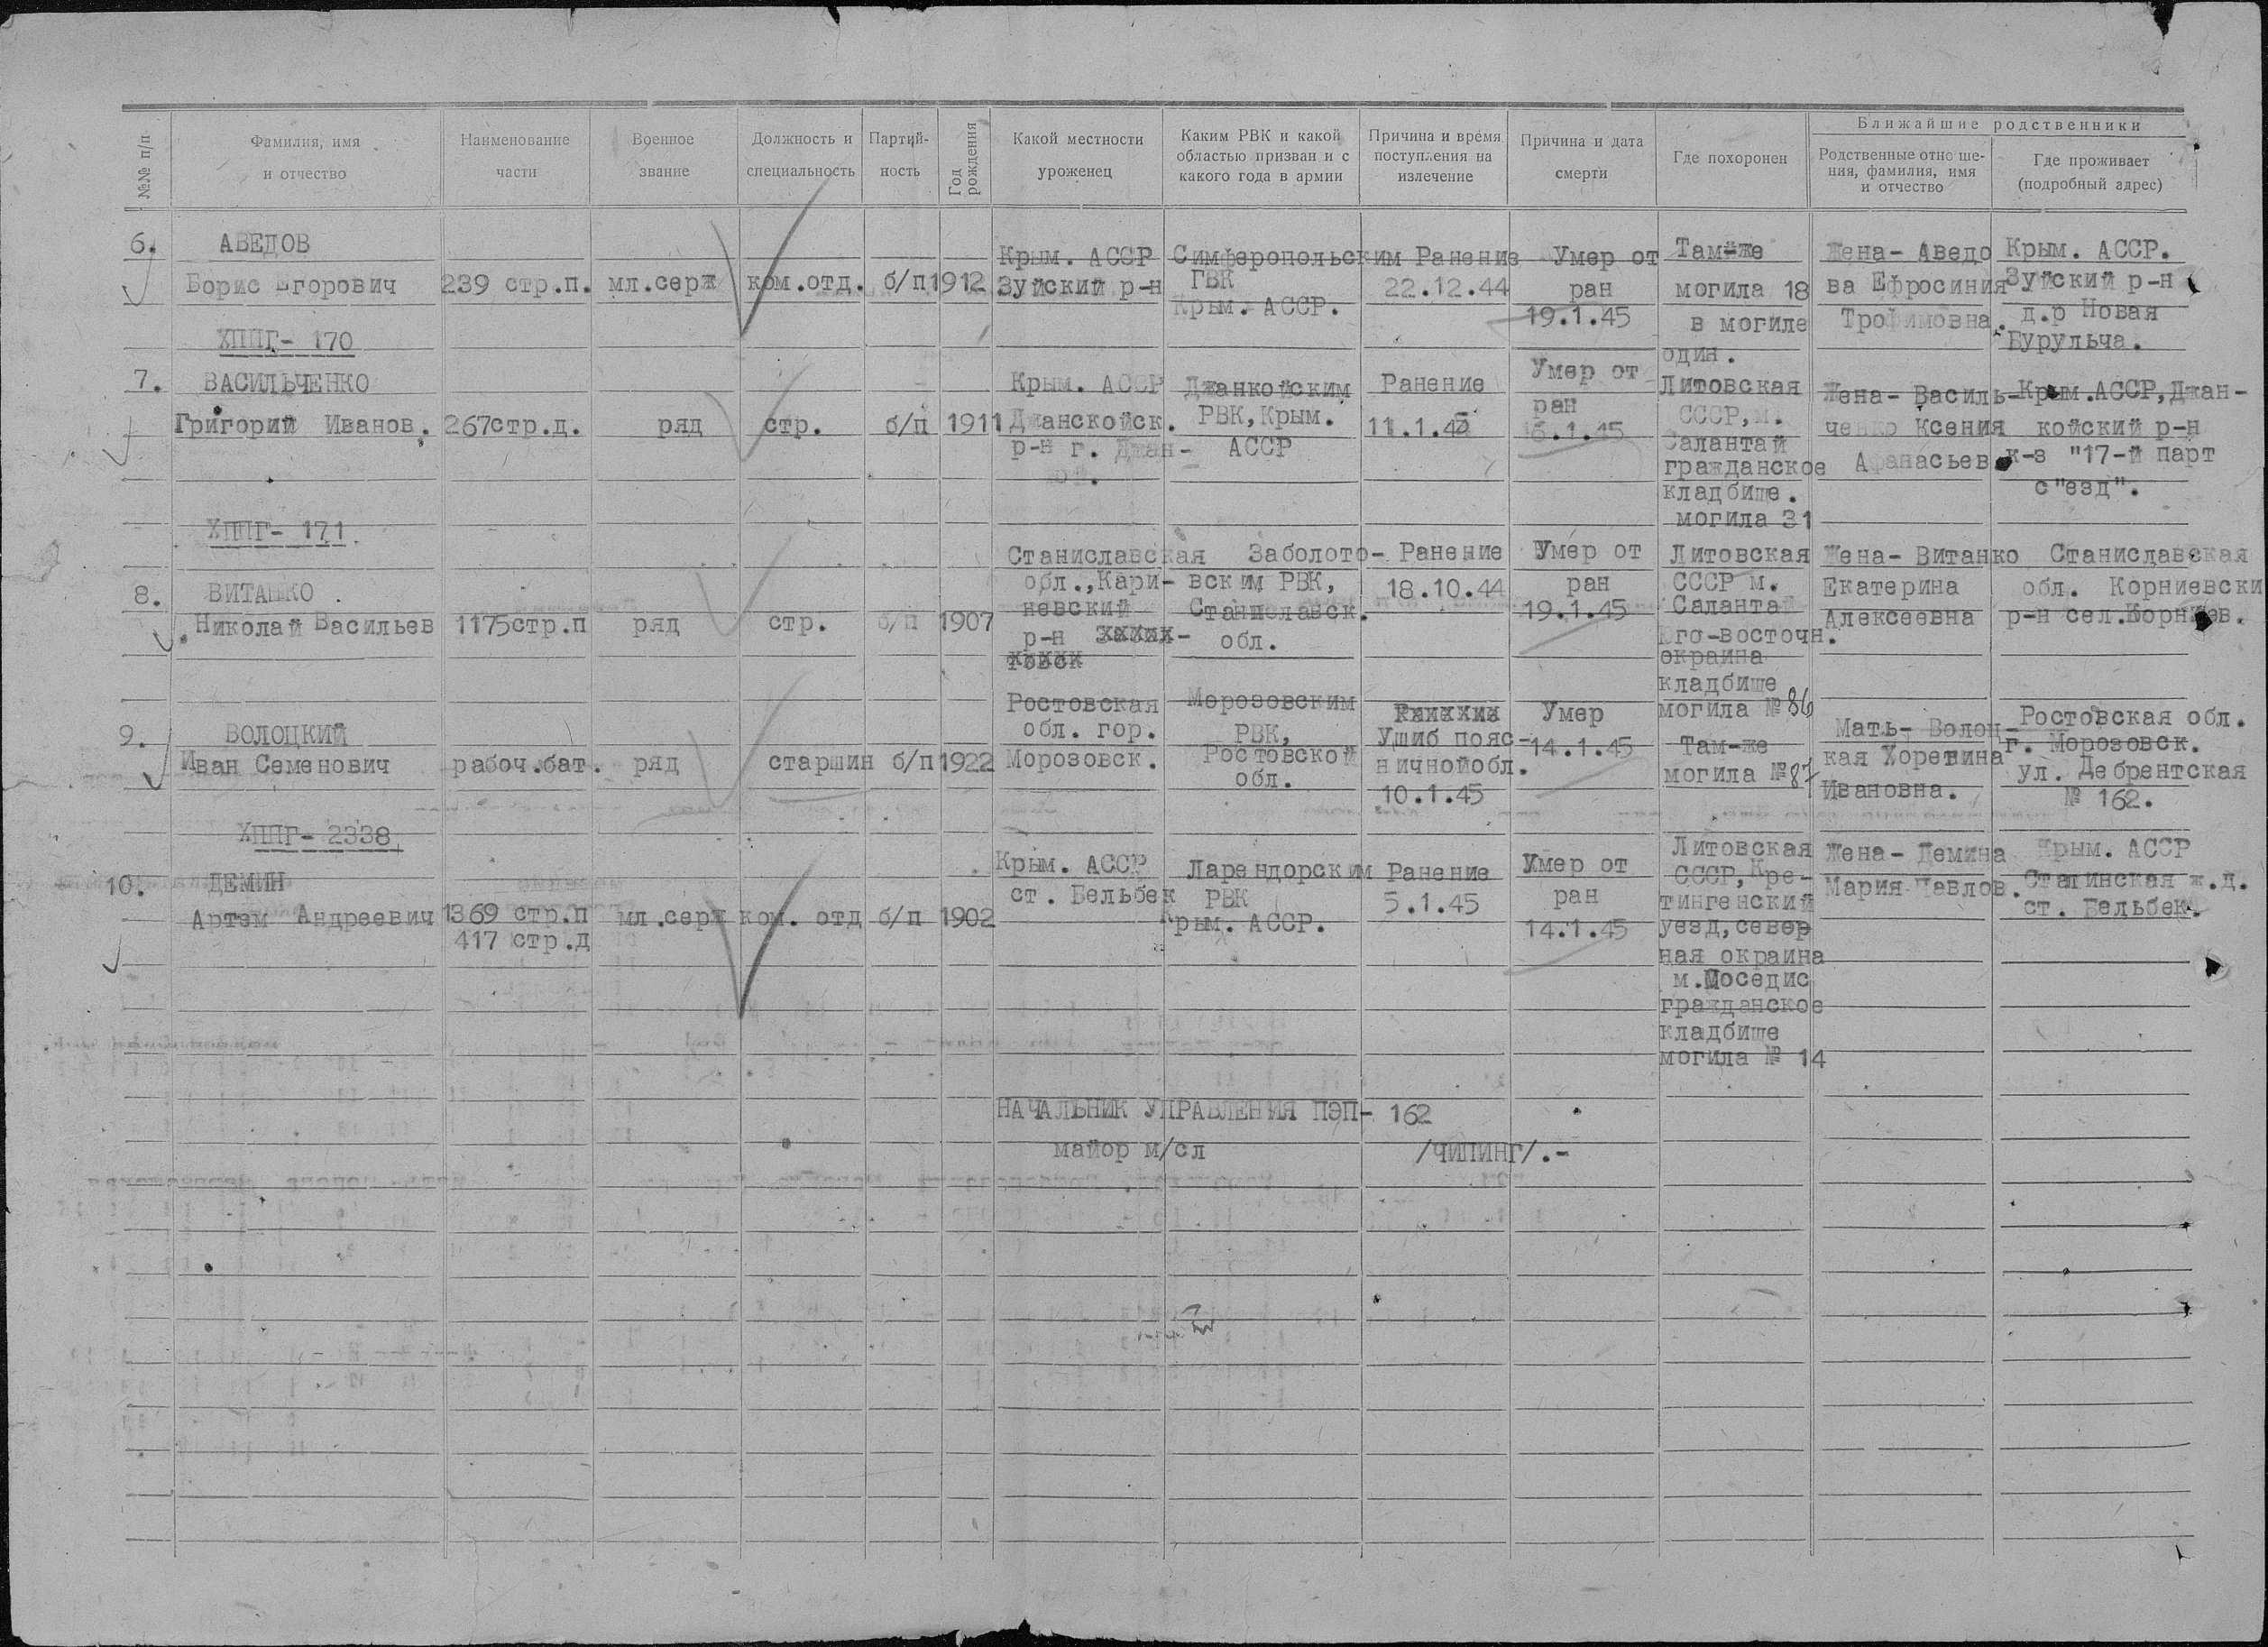 №№ п/п
Фамилия, имя
и отчество
Наименование
части
Военное
звание
Должность и
специальность
Партий-
ность
Год
рождения
Какой местности
уроженец
Каким РВК и какой
областью призван и с
какого года в армии
Причина и время
поступления на
излечение
Причина и дата
смерти
Где похоронен
Ближайшие родственники
Родственные отноше-
ния, фамилия, имя
и отчество
Где проживает
(подробный адрес)
6.
АВЕДОВ
Борис Егорович
239 стр.п.
мл.серж
ком.отд.
б/п
1912
Крым. АССР
Зуйский р-н
Симферопольским
ГВК
Крым. АССР.
Ранение
22.12.44
Умер от
ран
19.1.45
Там-же
могила 18
в могиле
один.
Жена- Аведо
ва Ефросиния
Трофимовна.
Крым. АССР.
Зуйский р-н
д.р Новая
Бурульча.
ХППГ- 170
7.
ВАСИЛЬЧЕНКО
Григорий Иванов.
267стр.д.
ряд
стр.
б/п
1911
Крым. АССР
Джанскойск.
р-н г. Джан-
кой.
Джанкойским
РВК,Крым.
АССР
Ранение
11.1.45
Умер от
ран
1.45
Литовская
СССР,м.
Салантай
гражданское
кладбище.
могила 31
Жена- Василь-
ченко Ксения
Афанасьев
Крым.АССР,Джан-
койский р-н
к-з "17-й парт
с"езд".
ХППГ- 171
8.
ВИТАНКО.
Николай Васильев
1175стр.п
ряд
стр.
б/п
1907
Станиславская
обл.,Кари-
невский
р-н
Заболото-
вским РВК,
Станиславск.
обл.
Ранение
18.10.44
Умер от
ран
19.1.45
Литовская
СССР м.
Салантай
Юго-восточн.
окраина
кладбище
могила № 86
Жена- Витанко
Екатерина
Алексеевна
Станиславская
обл. Корниевски
р-н сел.Корниев.
9.
ВОЛОЦКИЙ
Иван Семенович
рабоч.бат.
ряд
старшин
б/п
1922
Ростовская
обл. гор.
Морозовск.
Морозовским
РВК,
Ростовской
обл.
Ушиб пояс-
ничнойобл.
10.1.45
Умер
14.1.45
Там-же
могила №87
Мать- Волоц-
кая Хоретина
Ивановна.
Ростовская обл.
г. Морозовск.
ул. Дебрентская
№ 162.
ХППГ- 2338
10.
ДЕМИН
Артэм Андреевич
1369 стр.п
417 стр.д
мл.серж
ком. отд
б/п
1902
Крым. АССР
ст. Бельбек
Ларендорским
РВК
Крым. АССР.
Ранение
5.1.45
Умер от
ран
14.1.45
Литовская
СССР,Кре-
тингенский
уезд,север
ная окраина
м.Моседис
гражданское
кладбище
могила № 14
Жена- Демина
Мария Павлов.
Крым. АССР
Сталинская ж.д.
ст. Бельбек.
НАЧАЛЬНИК УПРАВЛЕНИЯ ПЭП- 162
майор м/сл /ЧИПИНГ/.-